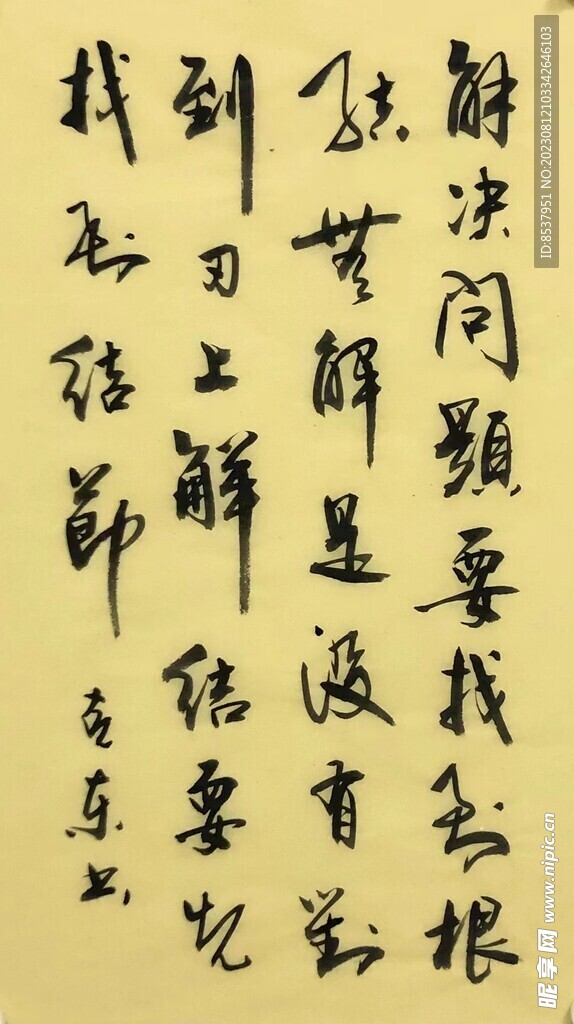 解决问題要找到根
结無解是没有對
到刃上解结要先
找到结節
克東书
ID:8537951 NO:20230812103342646103
昵享网 www.nipic.cn